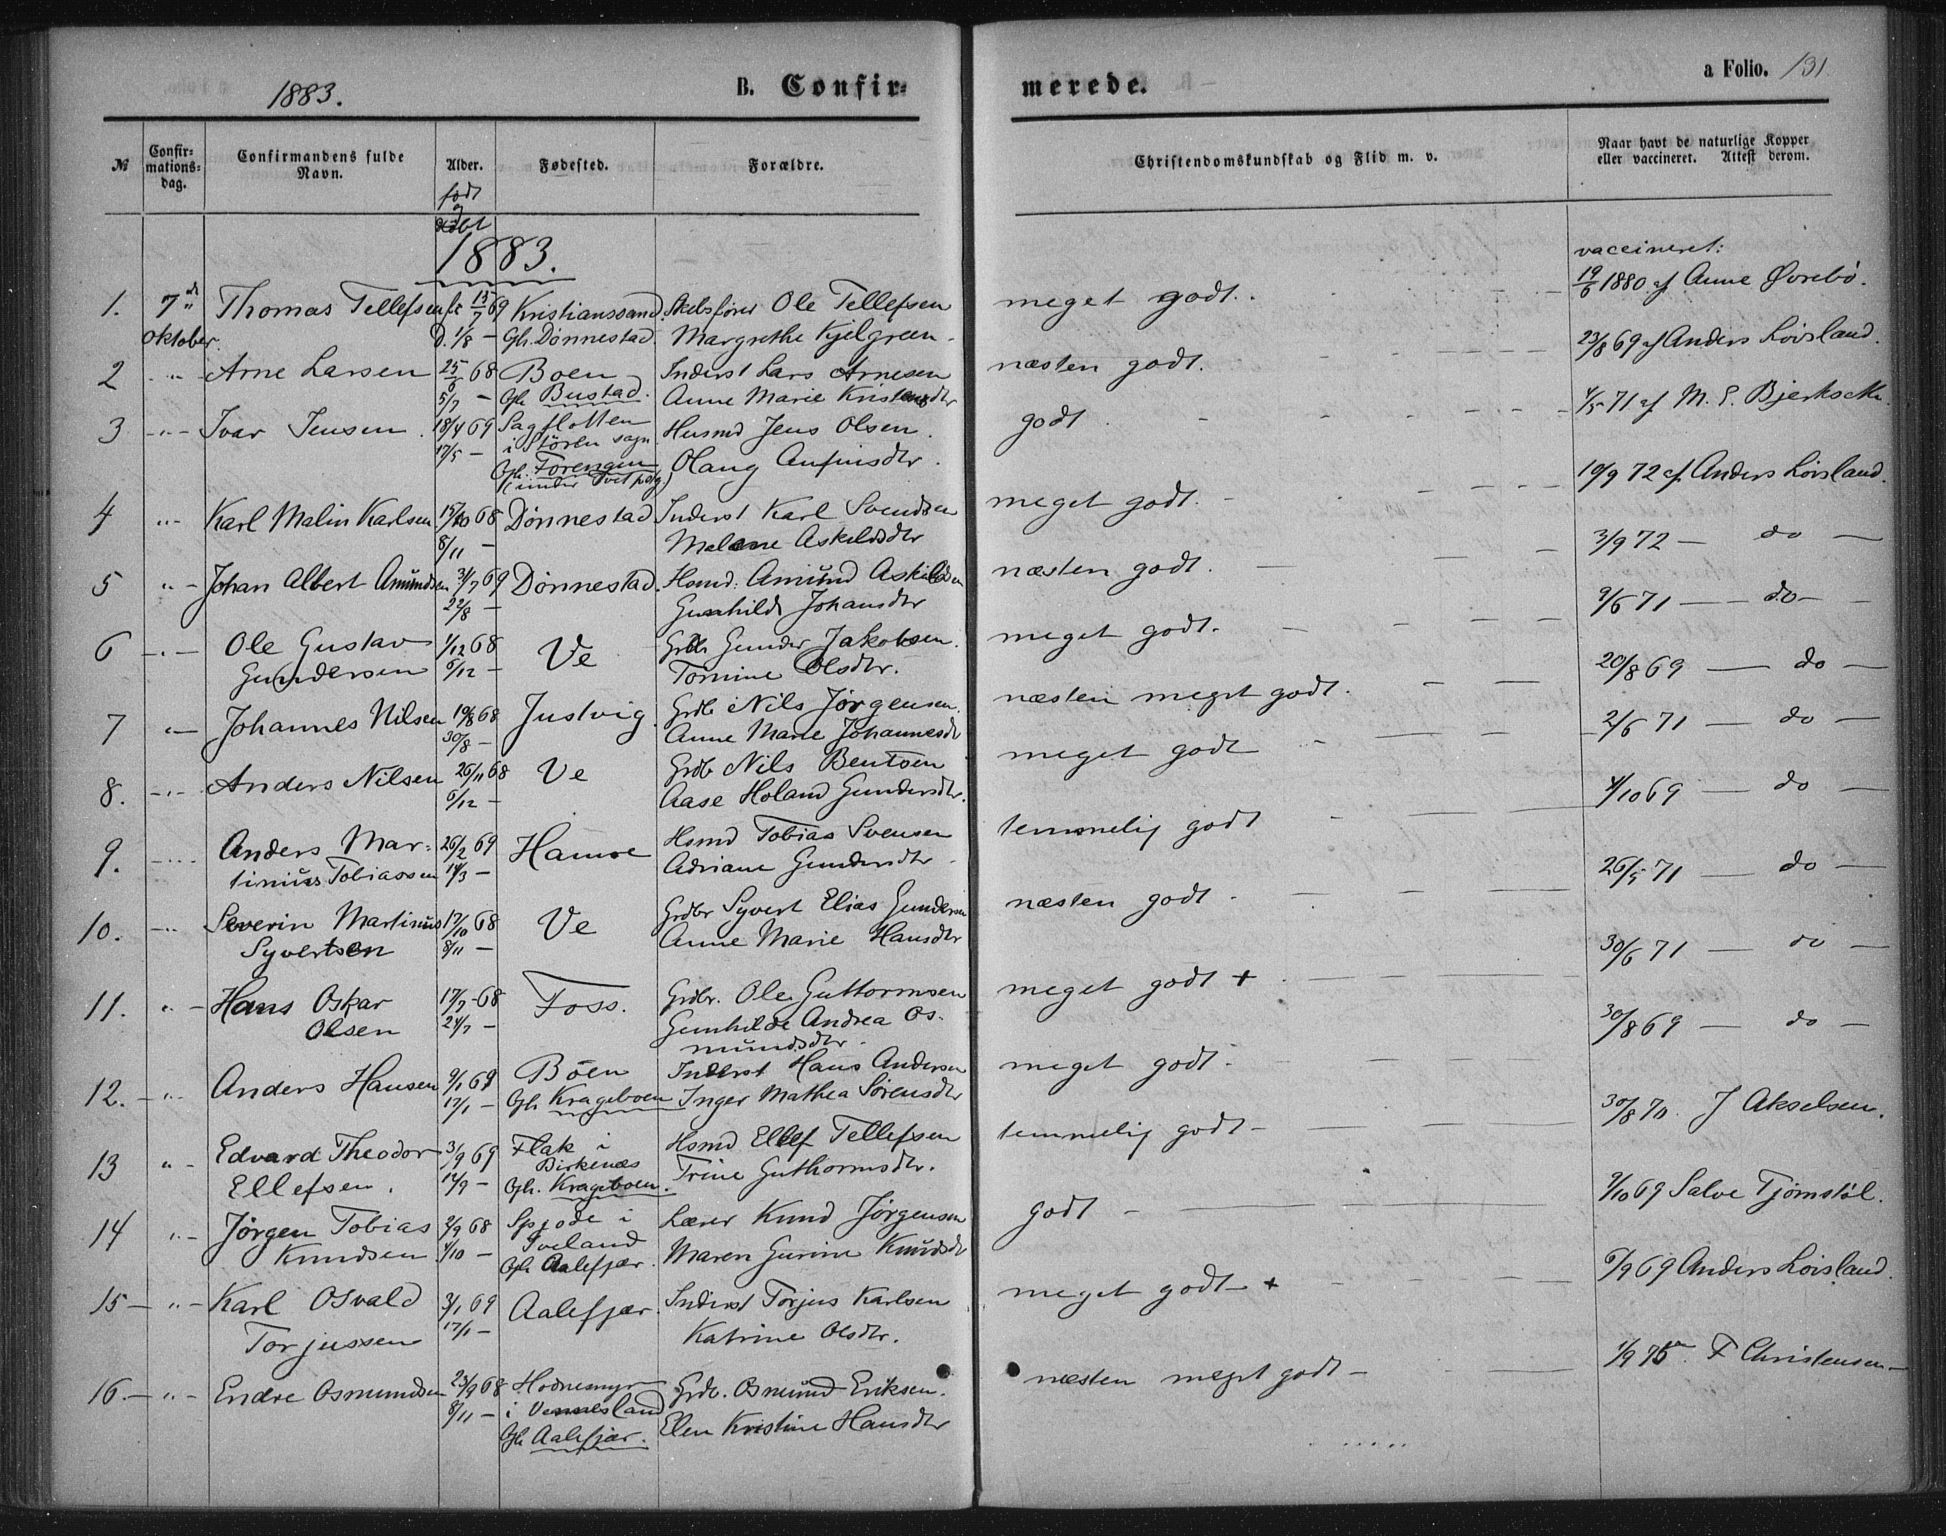 1883.
B. Confir-
merede.
a Folio. 131
№
Confir-
mations-
dag.
Confirmandens fulde
Navn.
Alder.
født
og
døbt
Fødested.
Forældre.
Christendomskundskab og Flid m. v.
Naar havt de naturlige Kopper
eller vaccineret. Attest derom.
1883.
vaccineret:
1. 7de Thomas Tellefsen f. 13/7 69 Kristianssand. Skibsfører Ole Tellefsen meget godt. 19/6 1880 af Anne Øvrebø.
Oktober. D. 1/8 — Gh. Dønnestad. Margrethe Kjelgreen
2 -"- Arne Larsen 25/6 68 Boen Inderst Lars Arnesen næsten godt. 23/8 69 af Anders Løvsland.
5/7 — Gh. Bustad. Anne Marie Kristensdtr
3 -"- Ivar Jensen. 18/4 69 Sagflotten Husmd Jens Olsen. godt. 4/5 71 af M. E. Bjerksæth.
17/5 — i Støren sogn
Gh. Forengen Olaug Anfinsdtr.
(under Tvet pdg)
4 -"- Karl Malin Karlsen 15/10 68 Dønnestad Inderst Karl Svendsen meget godt. 19/9 72 af Anders Løvsland.
8/11 — Melene Askildsdtr
5 -"- Johan Albert Amundsen 31/7 69 Dønnestad. Hsmd. Amund Askildsen næsten godt. 3/9 72 — do —
22/8 — Gunhilde Johansdtr
6 -"- Ole Gustav 1/12 68 Ve Grdbr Gunder Jakobsen. meget godt. 9/6 71 — do —
Gundersen 6/12 — Tomine Olsdtr.
7 -"- Johannes Nilsen 19/8 68 Justvig. Grdb Nils Jørgensen. næsten meget godt. 20/8 69 — do —
30/8 — Anne Marie Johannesdtr
8. -"- Anders Nilsen 26/11 68 Ve Grdb Nils Bentsen meget godt 2/6 71 — do —
6/12 — Aase Holand Gundersdtr.
9. -"- Anders Mar- 26/2 69 Hamre Hsmd Tobias Svensen temmelig godt 4/10 69 — do —
tinius Tobiassen 14/3 — Adriane Gundersdtr
10. -"- Severin Martinus 17/10 68 Ve Grdbr Syvert Elias Gundersen næsten godt 26/5 71 — do —
Syvertsen 8/11 — Anne Marie Hansdtr
11. -"- Hans Oskar 17/7 68 Foss. Grdbr. Ole Guttormsen meget godt + 30/6 71 — do —
Olsen 24/7 — Gunhilde Andrea Os-
mundsdtr.
12. -"- Anders Hansen 9/1 69 Boen Inderst Hans Andersen meget godt 30/8 69 — do —
17/1 — Gh. Krageboen Inger Mathea Sørensdtr
13 -"- Edvard Theodor 3/9 69 Flak i Hsmd Ellef Tellefsen temmelig godt — 30/8 70. J Akselsen.
Ellefsen. 12/9 — Birkenæs
Gh. Krageboen. Trine Guthormsdtr.
14 -"- Jørgen Tobias 2/9 68 Spjode i Lærer Knud Jørgensen godt — 9/10 69 Salve Tjømstøl.
Knudsen 4/10 — Iveland
Gh. Aalefjær. Maren Gurine Knudsdtr
15 — -"- Karl Osvald 3/1 69 Aalefjær. Inderst Torjus Karlsen meget godt + 6/9 69 Anders Løvsland.
Torjussen 17/1 — Katrine Olsdtr.
16. — -"- Endre Osmundsen 23/9 68 Hodnesmyr Grdb. Osmund Eriksen. næsten meget godt — 1/9 75. F Christensen —
8/11 — i Vennesland
Gh Aalefjær. Elen Kristine Hansdtr